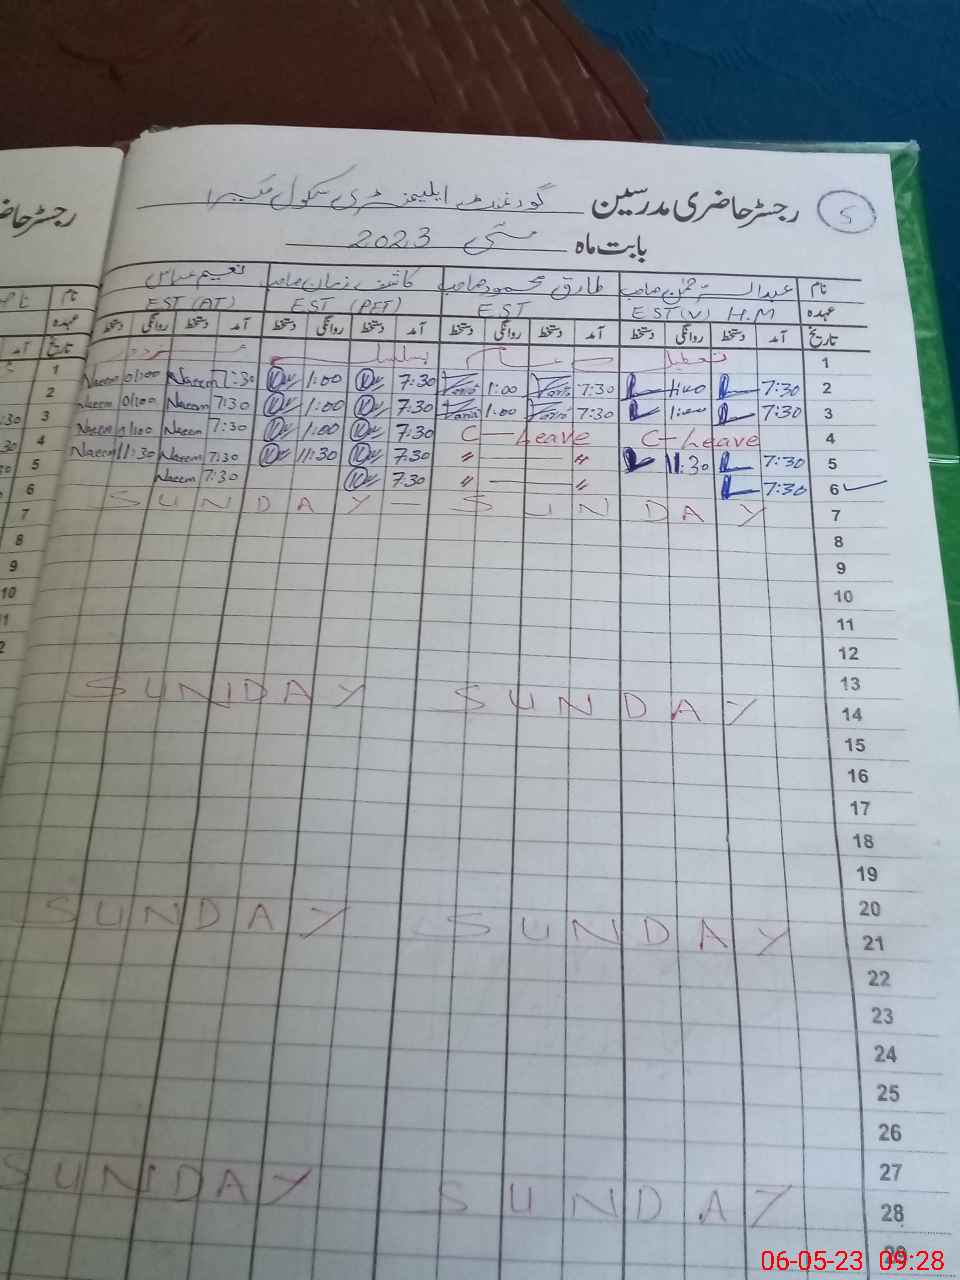 رجسٹر حاضری مدرسین گورنمنٹ ایلیمنٹری سکول 5
بابت ماہ مئی 2023
نام عبدالرحمٰن صاحب طارق محمود صاحب کاشف زمان صاحب نعیم عباس
عہدہ H.M EST(V) EST EST (PET) EST (AT)
تاریخ آمد دستخط روانگی دستخط آمد دستخط روانگی دستخط آمد دستخط روانگی دستخط آمد دستخط روانگی دستخط
1 تعطیل بسلسلہ
2 7:30 1:00 7:30 Tariq 1:00 Tariq 7:30 1:00 7:30 Naeem 01:00 Naeem
3 7:30 1:00 7:30 Tariq 1:00 Tariq 7:30 1:00 7:30 Naeem 01:00 Naeem
4 C-Leave C-Leave 7:30 1:00 7:30 Naeem 01:00 Naeem
5 7:30 11:30 〃 〃 7:30 11:30 7:30 Naeem 11:30 Naeem
6 7:30 〃 〃 7:30 7:30 Naeem
7 SUNDAY - SUNDAY
8
9
10
11
12
13
14 SUNDAY SUNDAY
15
16
17
18
19
20
21 SUNDAY SUNDAY
22
23
24
25
26
27
28 SUNDAY SUNDAY
29
رجسٹر حاضری
نام
عہدہ
تاریخ آمد
1
2
3
4
5
6
7
8
9
10
06-05-23 09:28